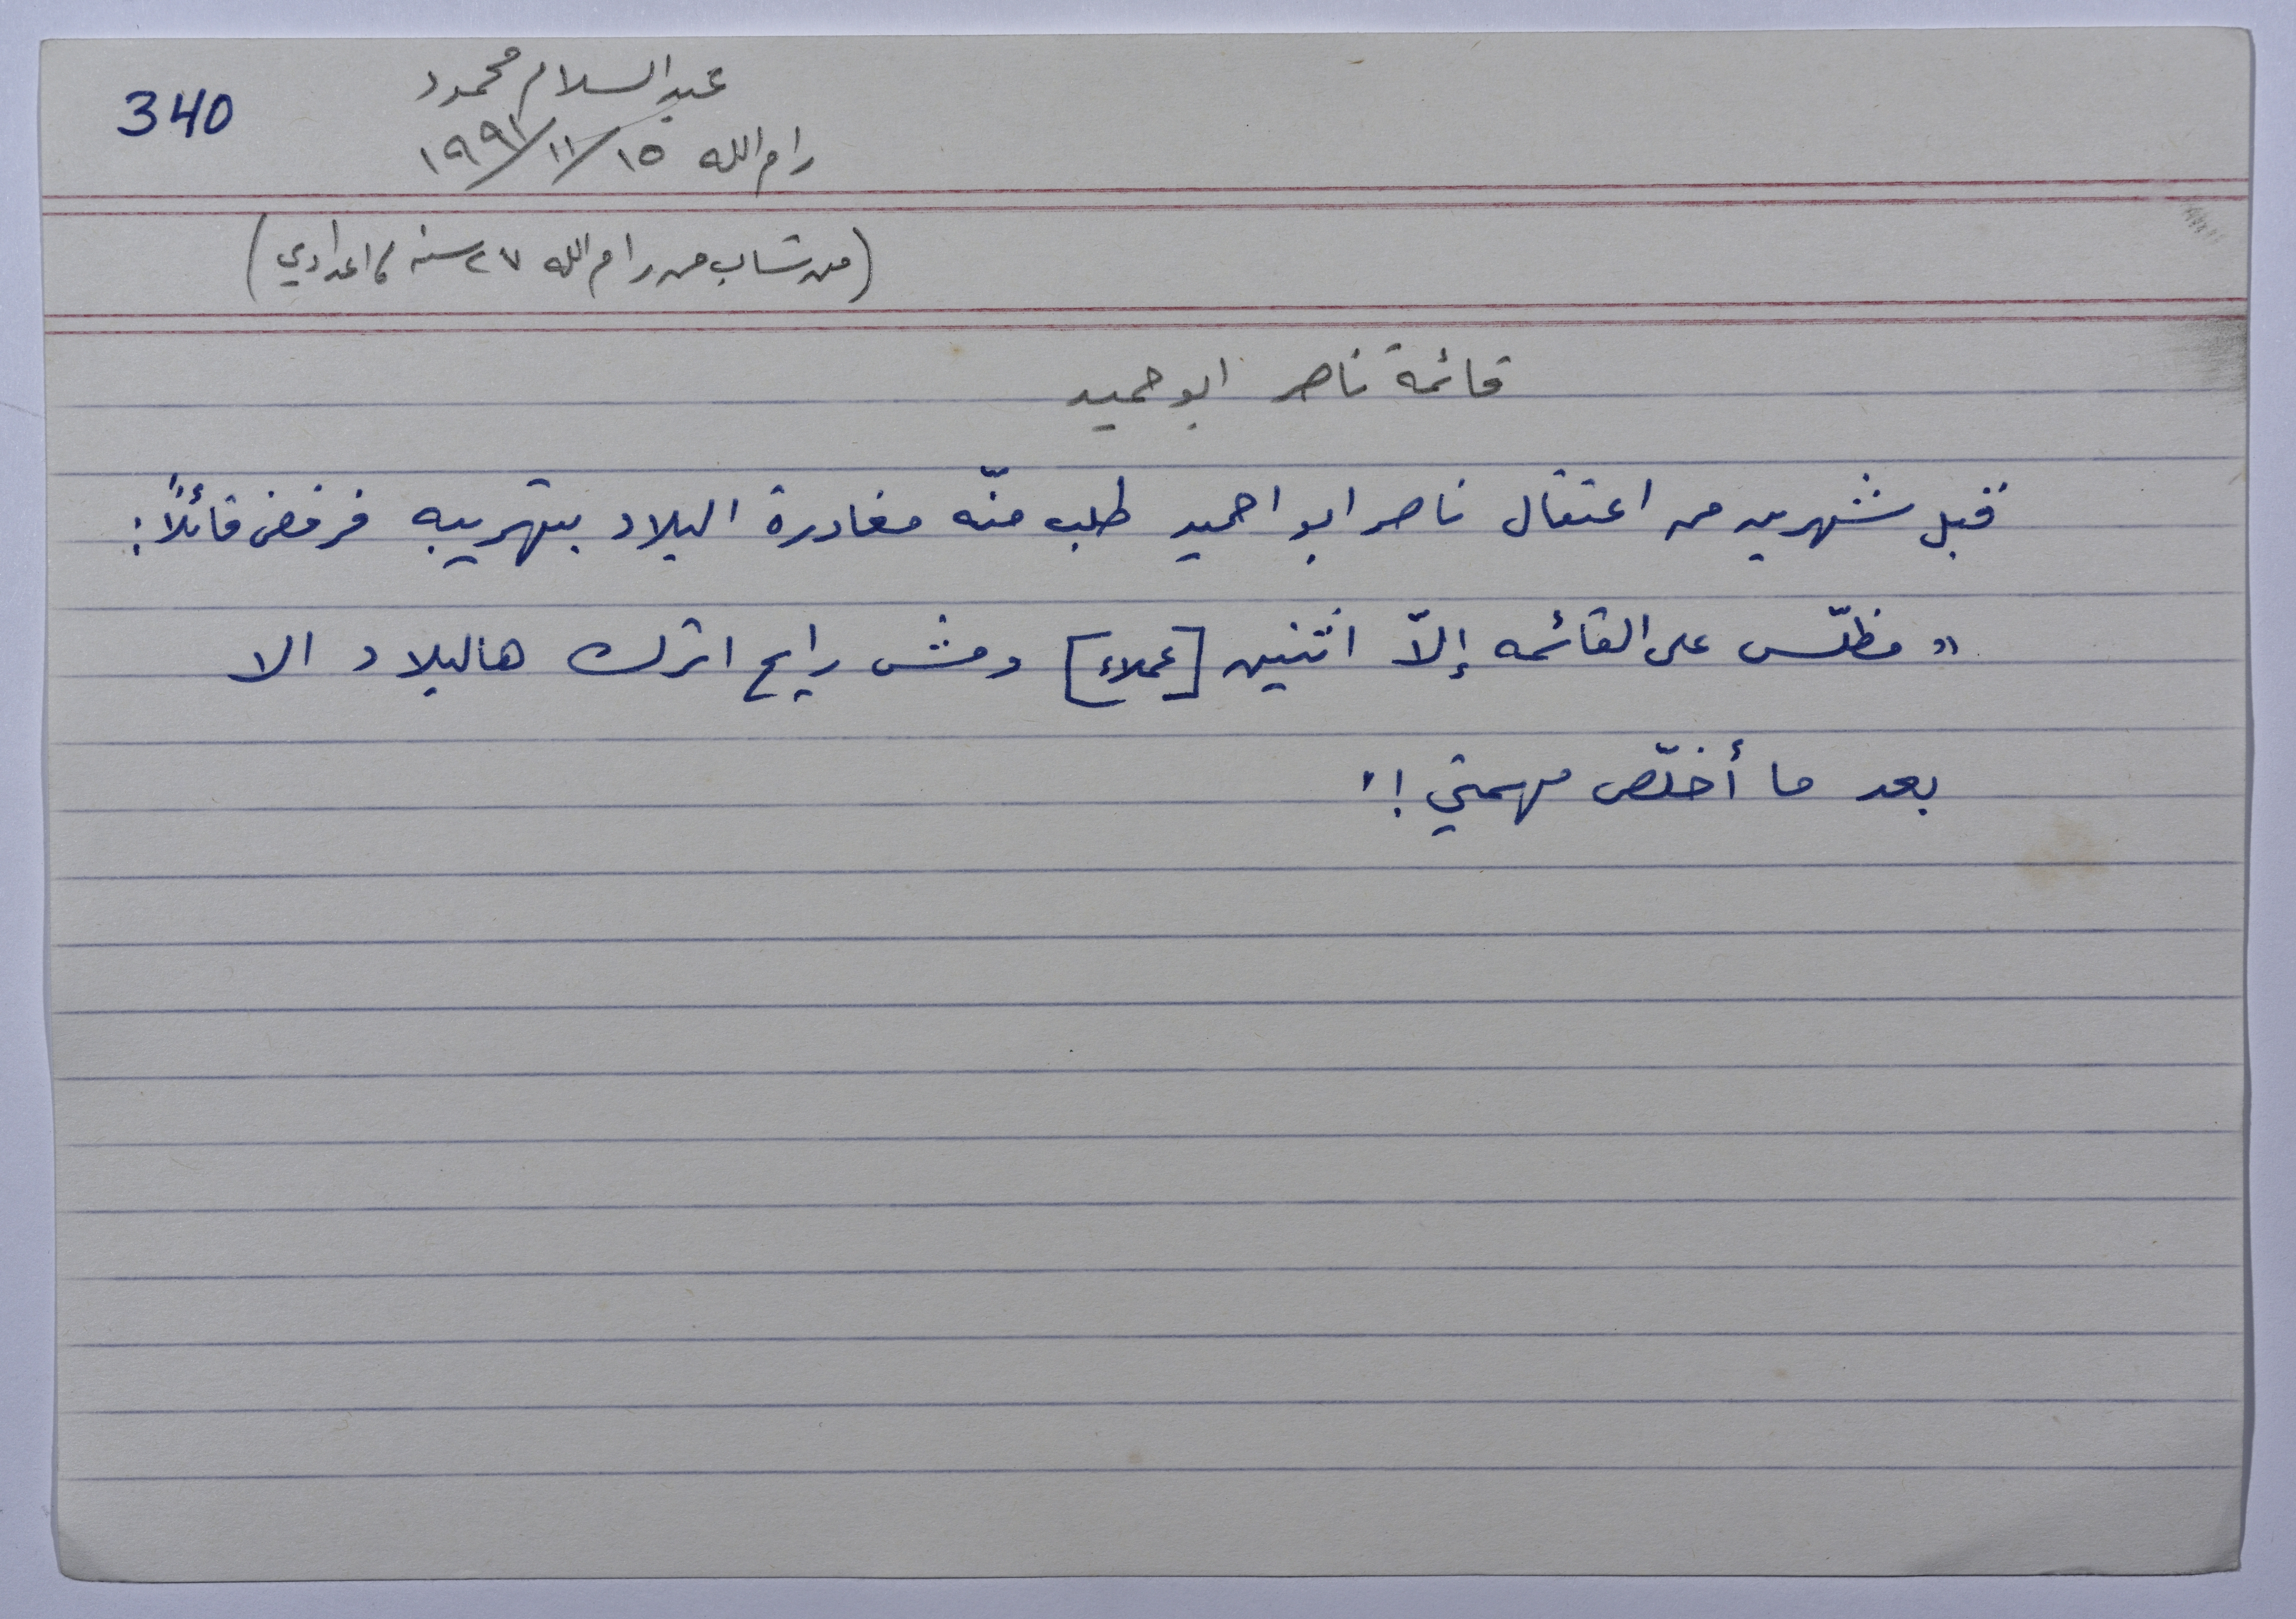 340
عبد السلام محمود
رام الله ١٥/١١/١٩٩١
(من شاب من رام الله ٢٧ سنه، اعدادي)
قائمة ناصر ابو حميد
قبل شهرين من اعتقال ناصر ابو احميد طلب منّه مغادرة البلاد بتهريبه فرفض قائلاً:
"مظلّش على القائمه إلاّ اثنين [عملاء] ومش رايح اترك هالبلاد الا
بعد ما أخلّص مهمتي!"